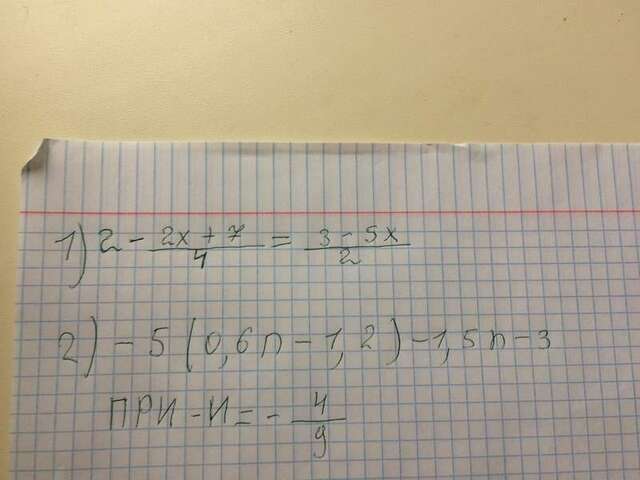 1) 2 - \frac{2x + 7}{4} = \frac{3 - 5x}{2}
2) - 5 (0,6n - 1,2) - 1,5n - 3
ПРИ -И = - \frac{4}{9}